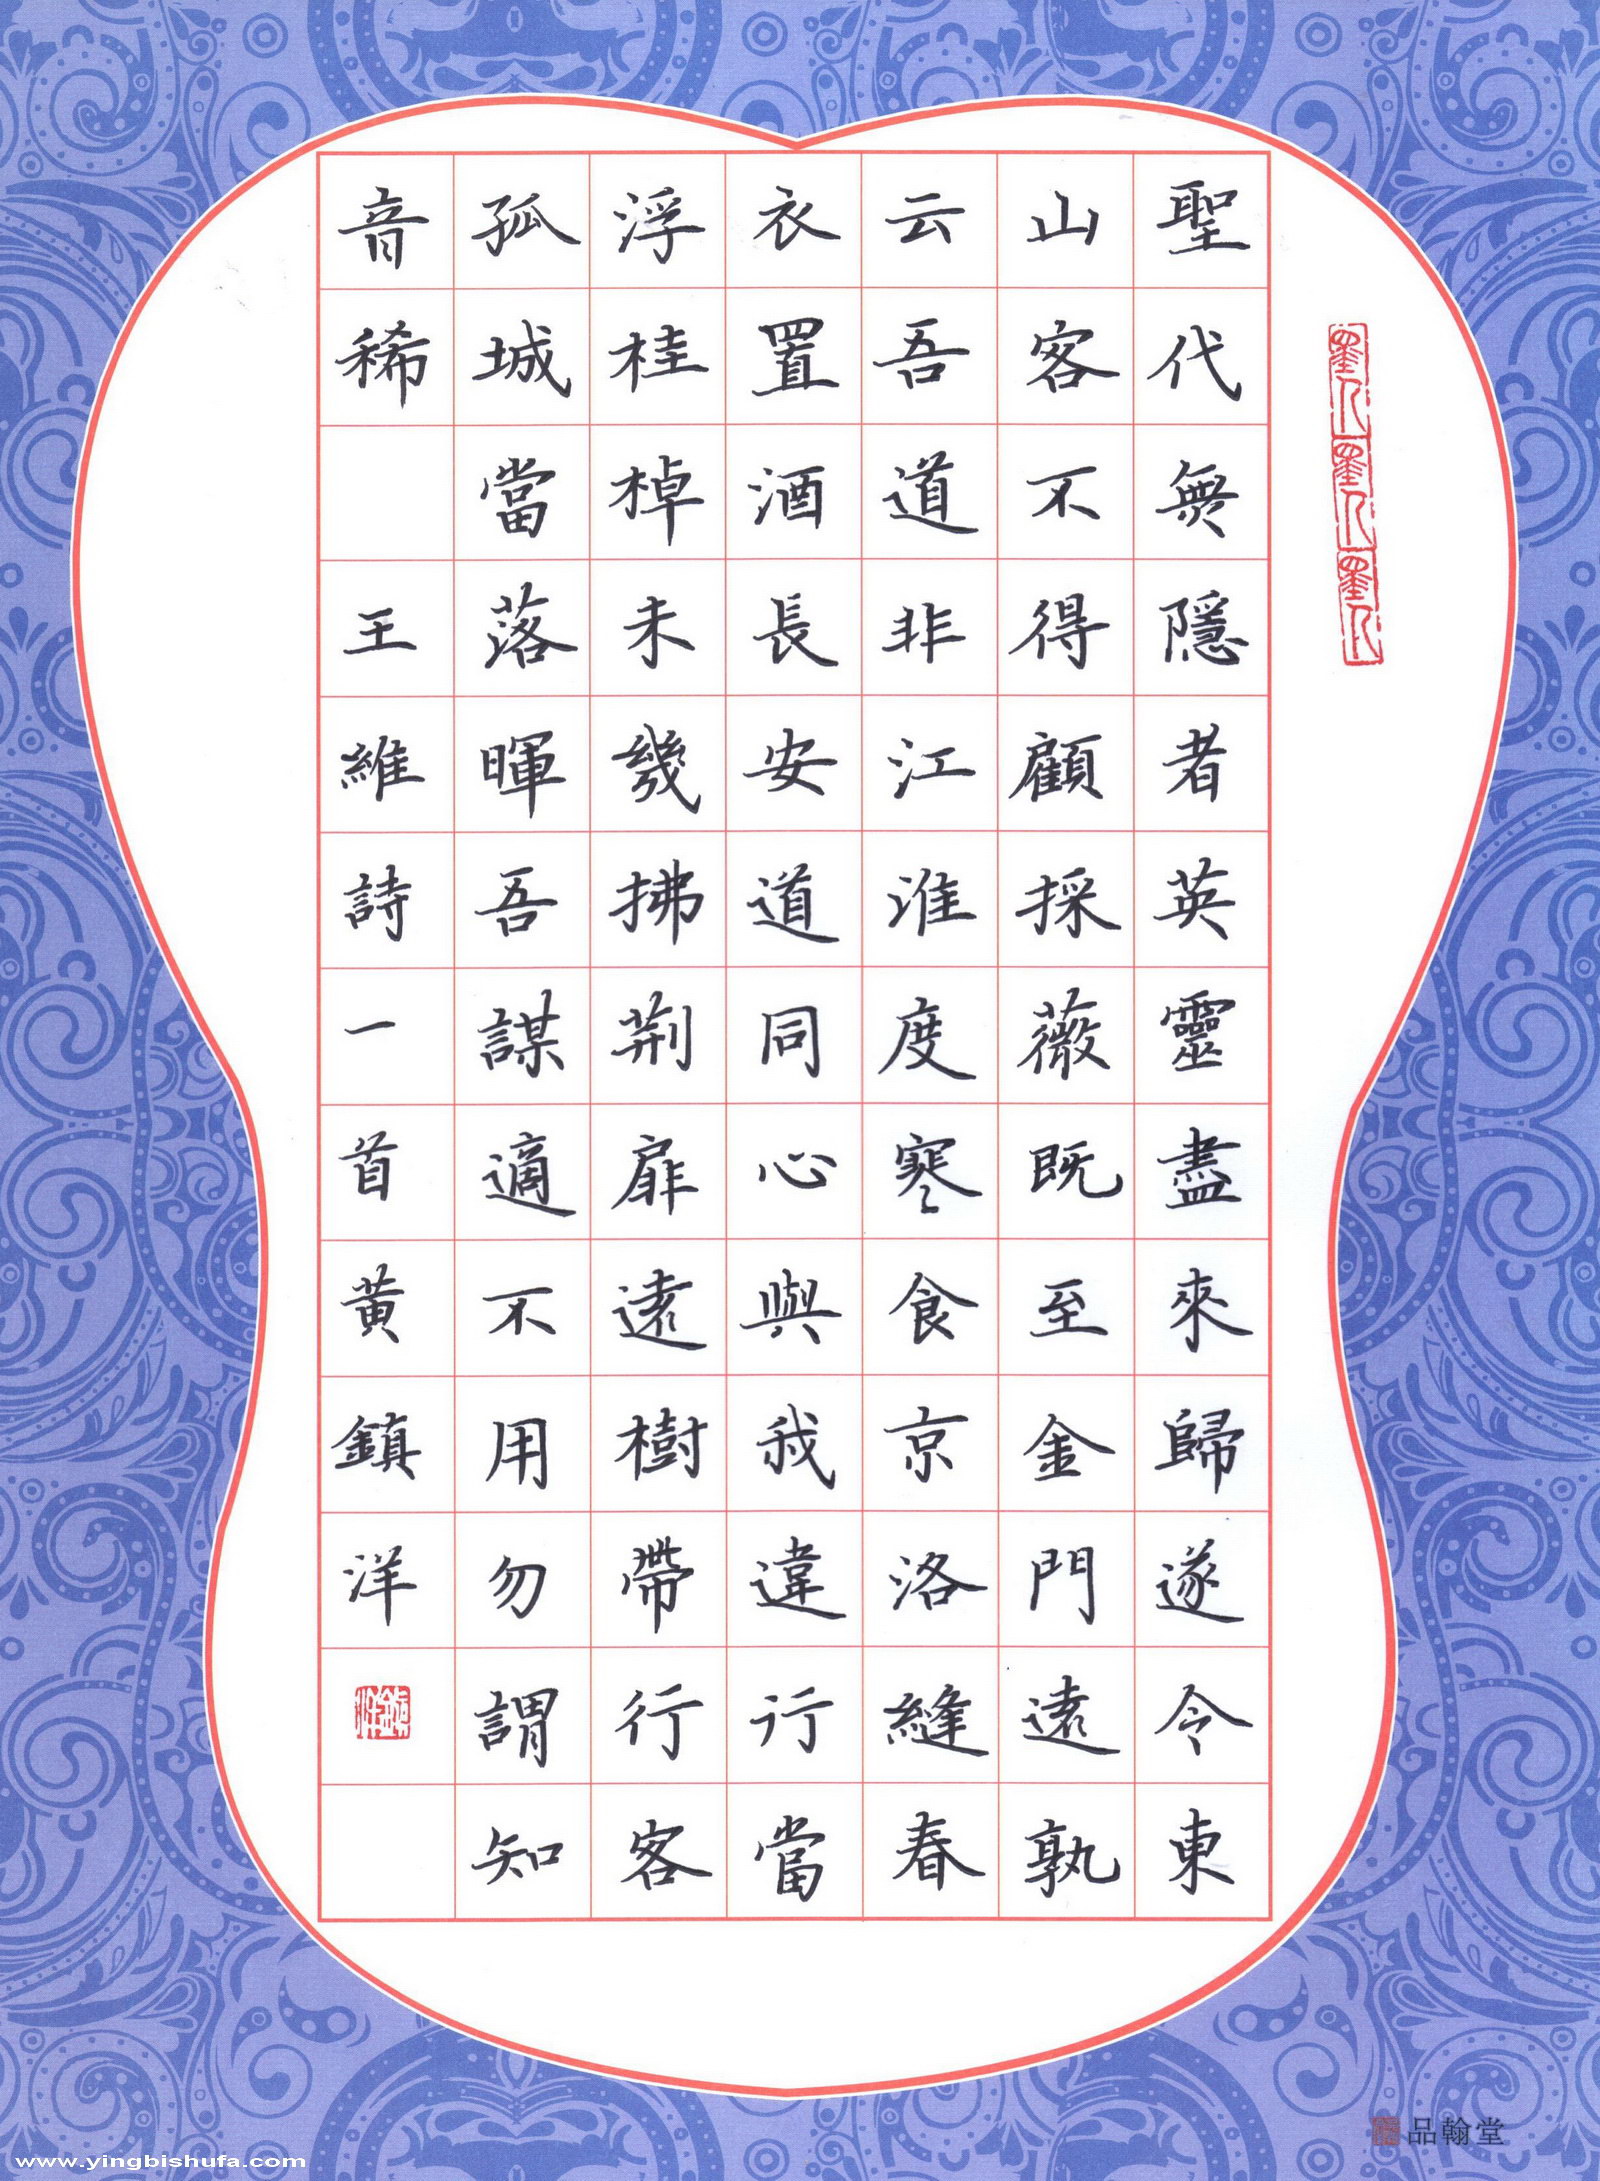 聖代無隱者英靈盡來歸遂令東
山客不得顧採薇既至金門遠孰
云吾道非江淮度寒食京洛縫春
衣置酒長安道同心與我違行當
浮桂棹未幾拂荊扉遠樹帶行客
孤城當落暉吾謀適不用勿謂知
音稀 王維詩一首黃鎮洋
鎮洋
品翰堂
www.yingbishufa.com